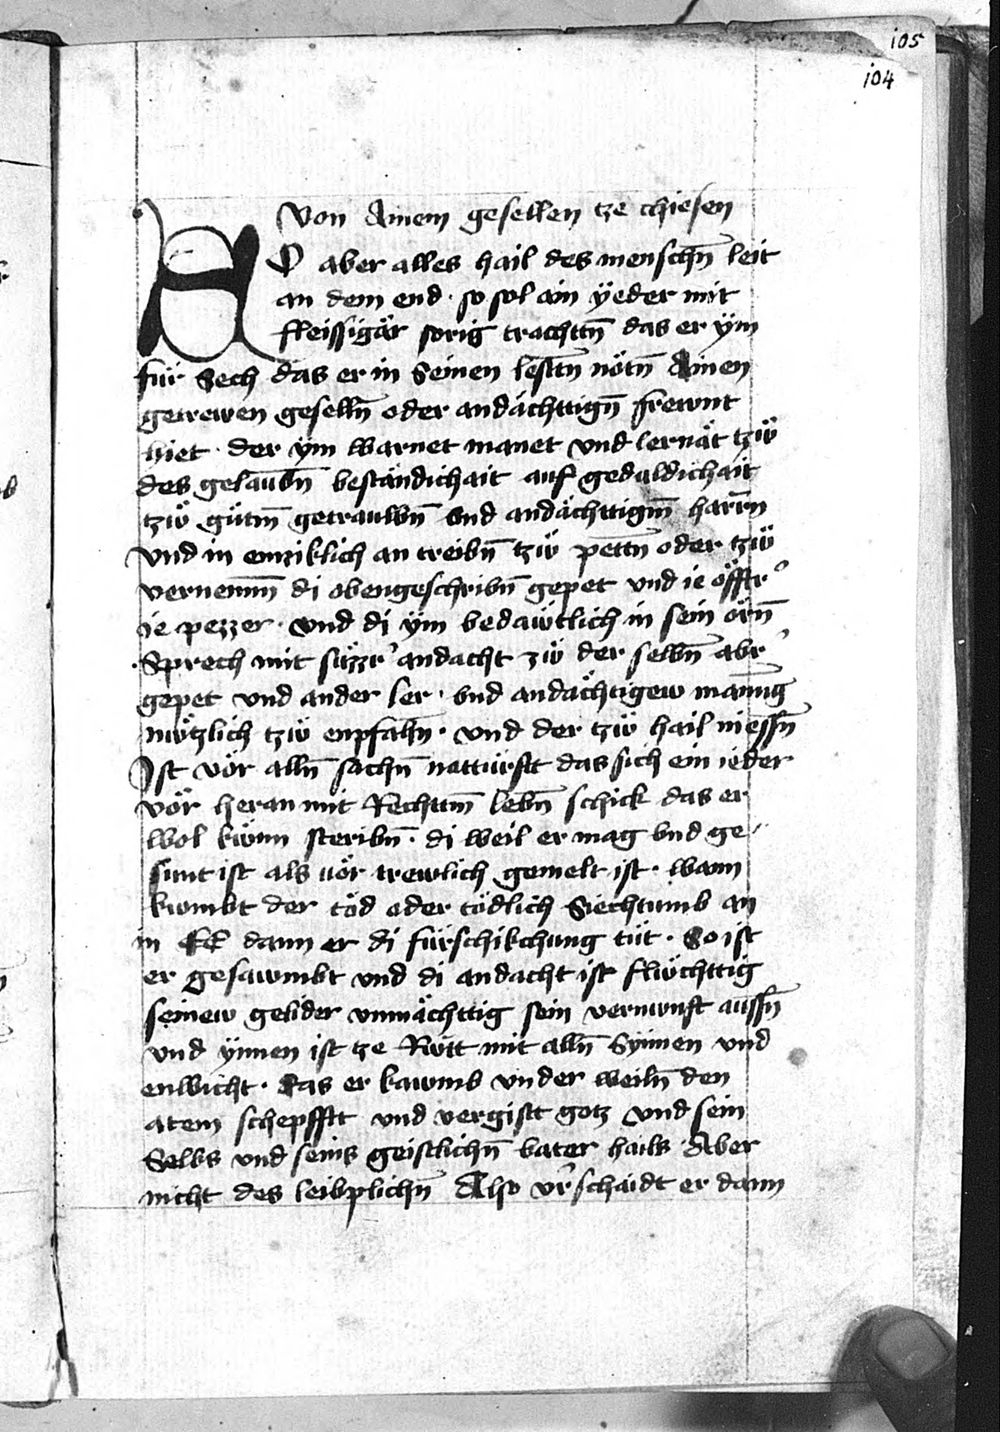 105
104
Von Ainem gesellen tze chiesen
O aber alles hail des menschn̄ leit
an dem end · so sol ain ÿeder mit
fleissigär sorig trachttn̄ das er ÿm
für Sech das er in Seinen lesttn̄ nötn̄ Ainen
getrewen geselln̄ oder andächttign̄ frewnt
hiet · der ÿm warnet manet vnd lernät tzẅ
des gelaubn̄ beständichait auf geduldichait
tzẅ gütm̄ getrauwn̄ vnd andächttigm̄ harrn̄
vnd in emziklich an treibn̄ tzẅ pettn̄ oder tzẅ
vernemm̄ di obengeschribn̄ gepet vnd ie öfftr
ie pezzer · vnd di ÿm bedawtlich in sein örn̄
Sprech mit süzzr andacht zẅ der selbn̄ abr
gepet vnd ander ler · vnd andächtigew manung
nwtzlich tzẅ enpfahn̄ · vnd der tzẅ hail niessn̄
Ist vör alln̄ sachn̄ nottürftt das sich ein ieder
vör heran mit Rechttm̄ lebn̄ schick das er
wol kwnn steribn̄ · di weil er mag vnd ge
sunt ist als vör trewlich gemelt ist · wann
kwmbt der töd oder tödlich Siechtumb an
in EE dann er di fürschikchung tüt · So ist
er gesawmbt vnd di andacht ist flwchttig
seinew gelider vnmächttig sein vernwnft aussn̄
vnd ÿnnen ist tze Rütt mit alln̄ Sÿnnen vnd
enwicht · das er kawmb vnder weiln̄ den
atem schepfftt vnd vergistt gotz vnd sein
Selbs vnd seins geistlichn̄ vater hails Aber
nicht des leibplichn̄ Also vr̄schaidt er dann